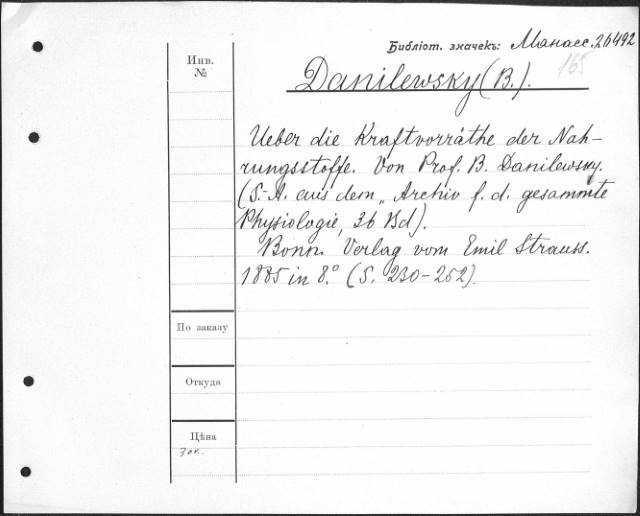 Библіот. значекъ: Манасс. 26492
165
Инв.
№
Danilewsky (B.).
Ueber die Kraftvorräthe der Nah-
rungsstoffe. Von Prof. B. Danilewsky.
(S.-A. aus dem „Archiv f. d. gesammte
Physiologie, 36 Bd).
Bonn. Verlag vom Emil Strauss.
1885 in 8.° (S. 230-252).
По заказу
Откуда
Цѣна
30 к.